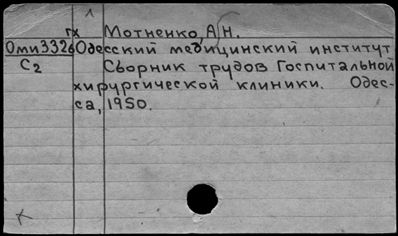 1
гх Мотненко, А. Н.
Оми332б Одесский медицинский институт.
С2 Сборник трудов Госпитальной
хирургической клиники. Одес-
са, 1950.